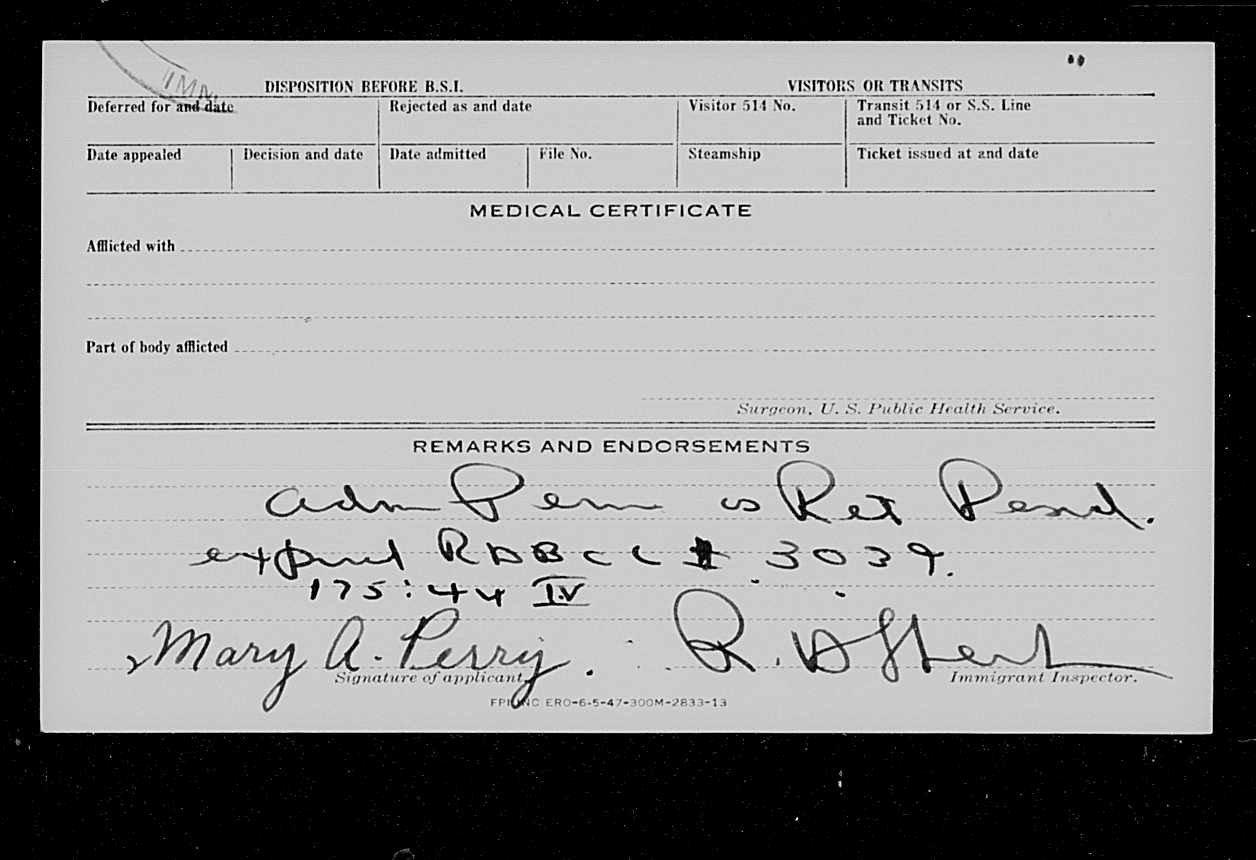 IMM
DISPOSITION BEFORE B.S.I. VISITORS OR TRANSITS
Deferred for and date Rejected as and date Visitor 514 No. Transit 514 or S.S. Line
and Ticket No.
Date appealed Decision and date Date admitted File No. Steamship Ticket issued at and date
MEDICAL CERTIFICATE
Afflicted with
Part of body afflicted
Surgeon, U. S. Public Health Service.
REMARKS AND ENDORSEMENTS
adm Perm as Ret Resd.
RDBCC # 3039.
175:44 IV
Mary A. Perry. R.
Signature of applicant. Immigrant Inspector.
INC ERO-6-5-47-300M-2833-13